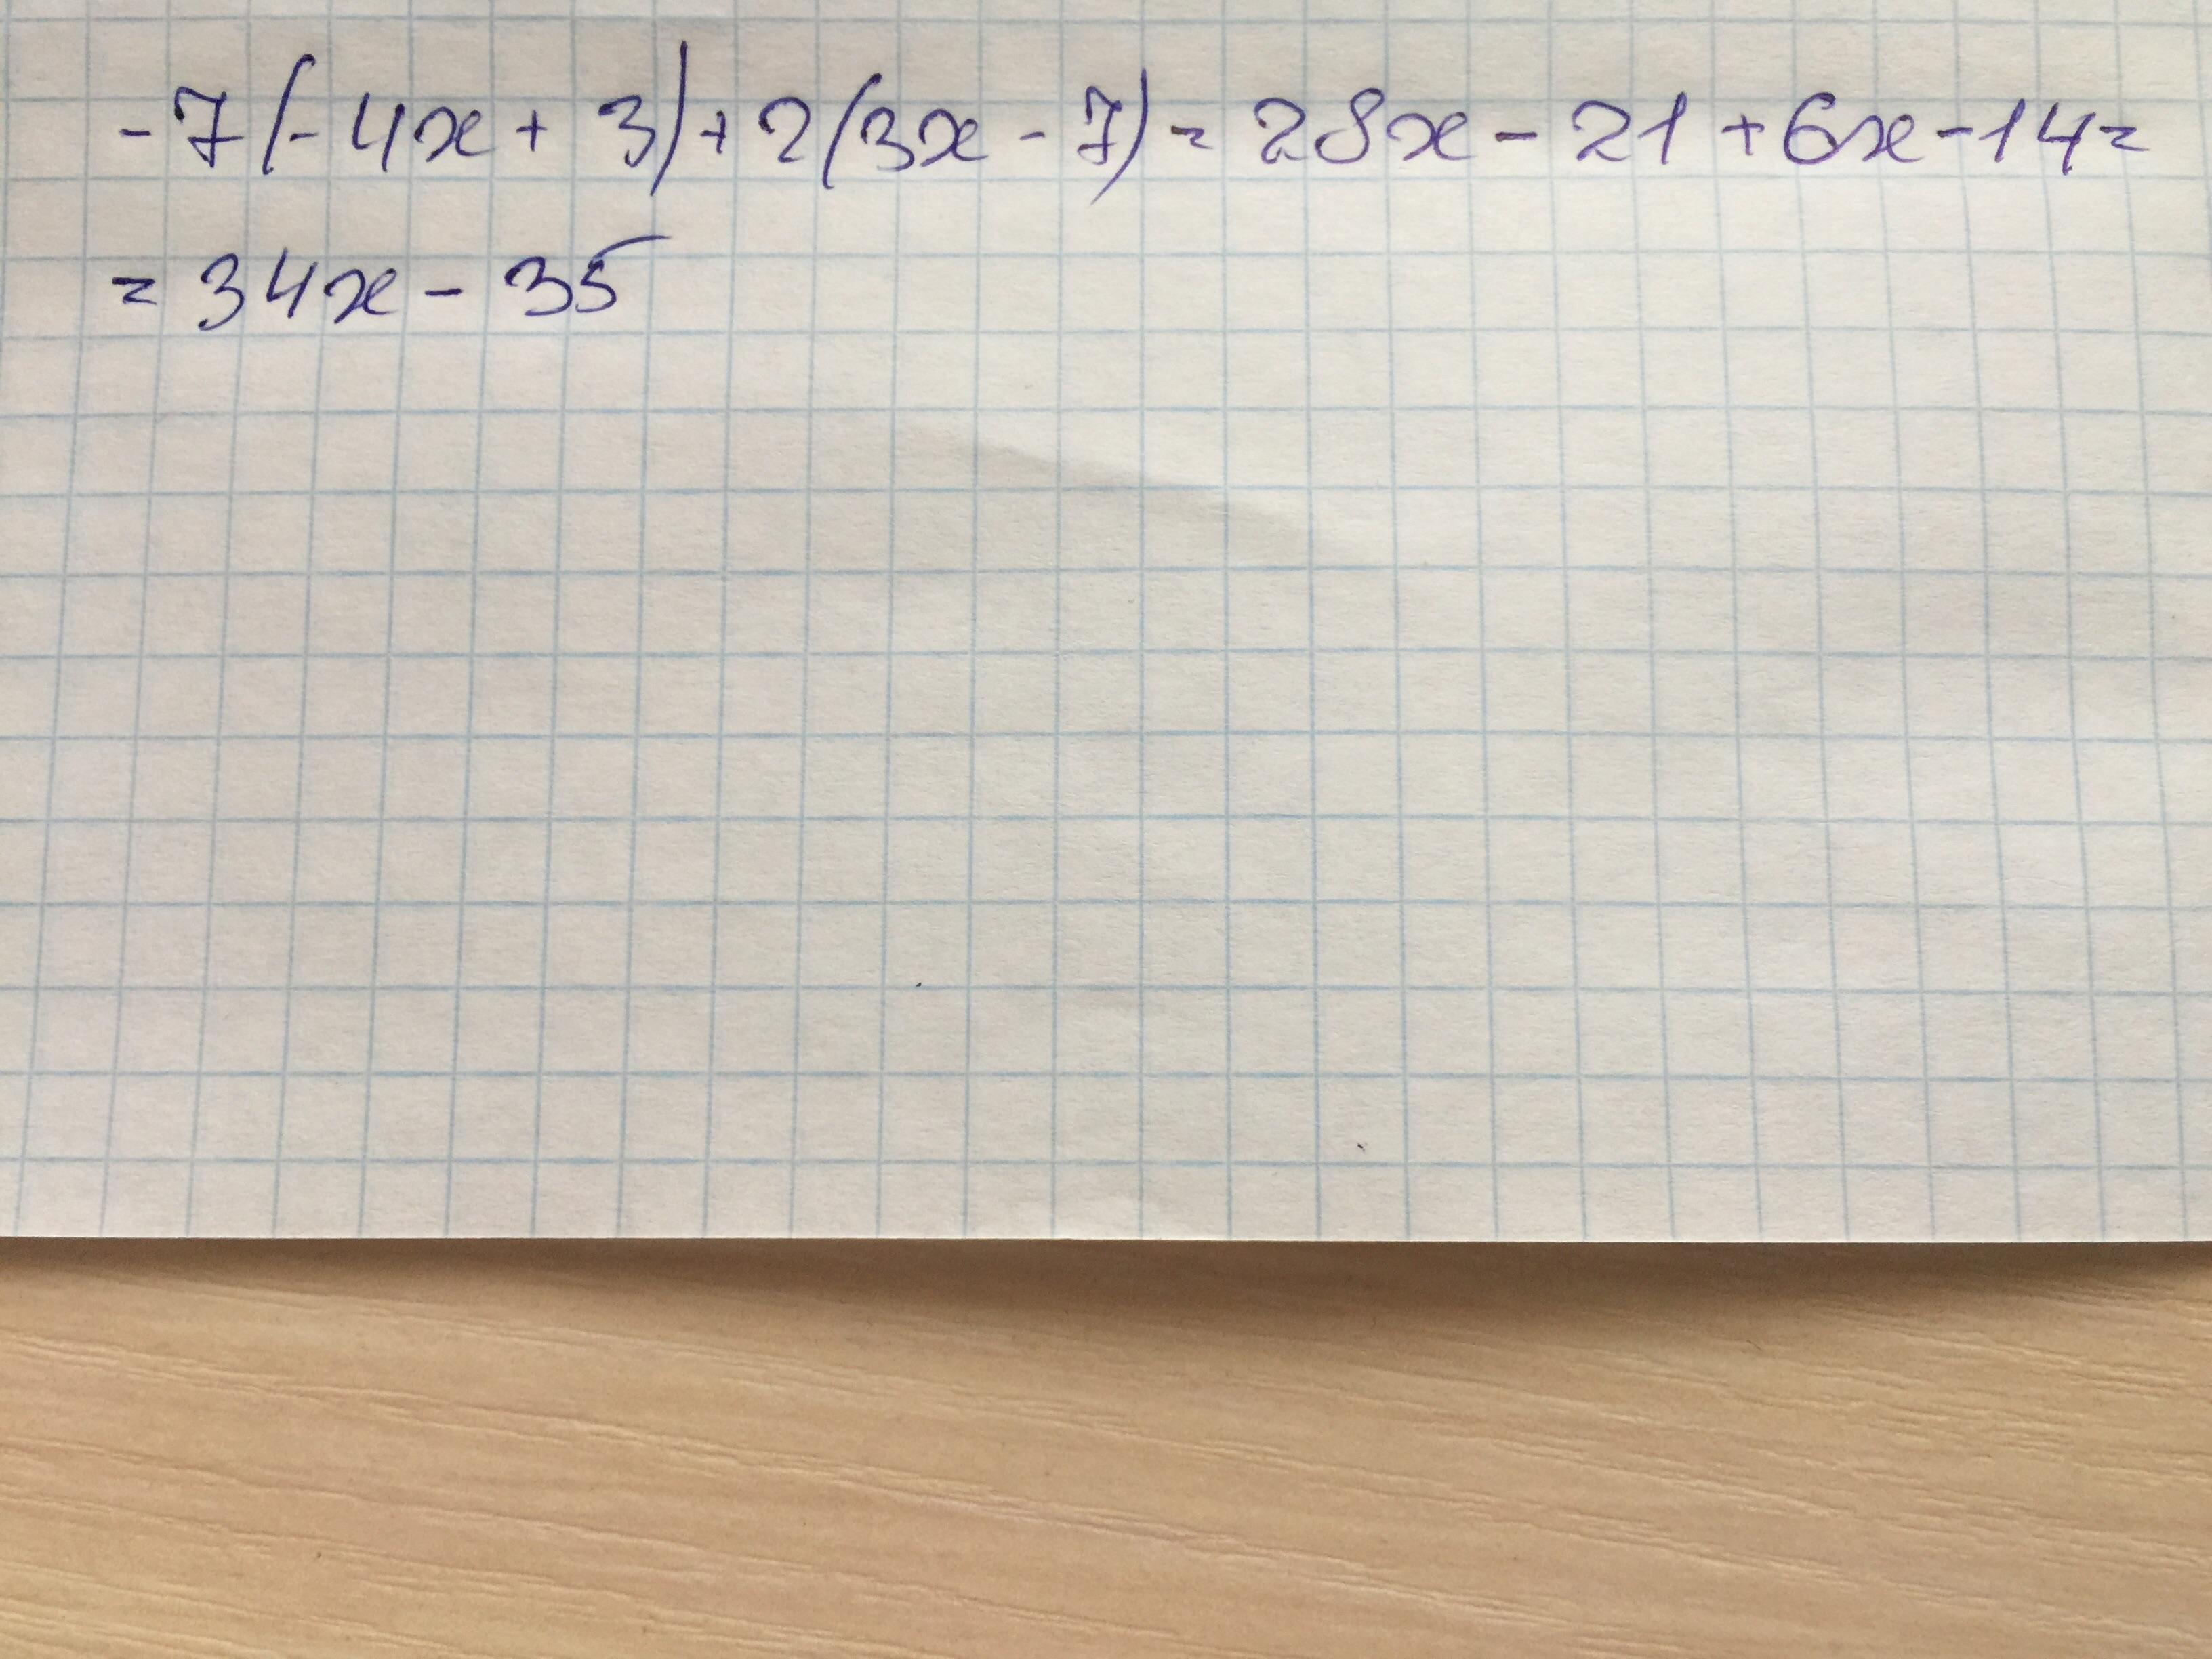 -7(-4x + 3) + 2(3x - 7) = 28x - 21 + 6x - 14 =
= 34x - 35